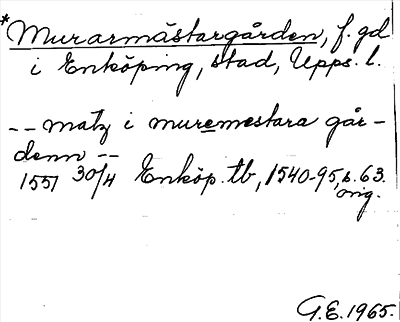 *Murarmästargården, f. gd
i Enköping, stad, Upps. l.
-- matz i muremestara går-
denn --
1557 30/4 Enköp. tb, 1540-95, s. 63.
orig.
G.E. 1965.